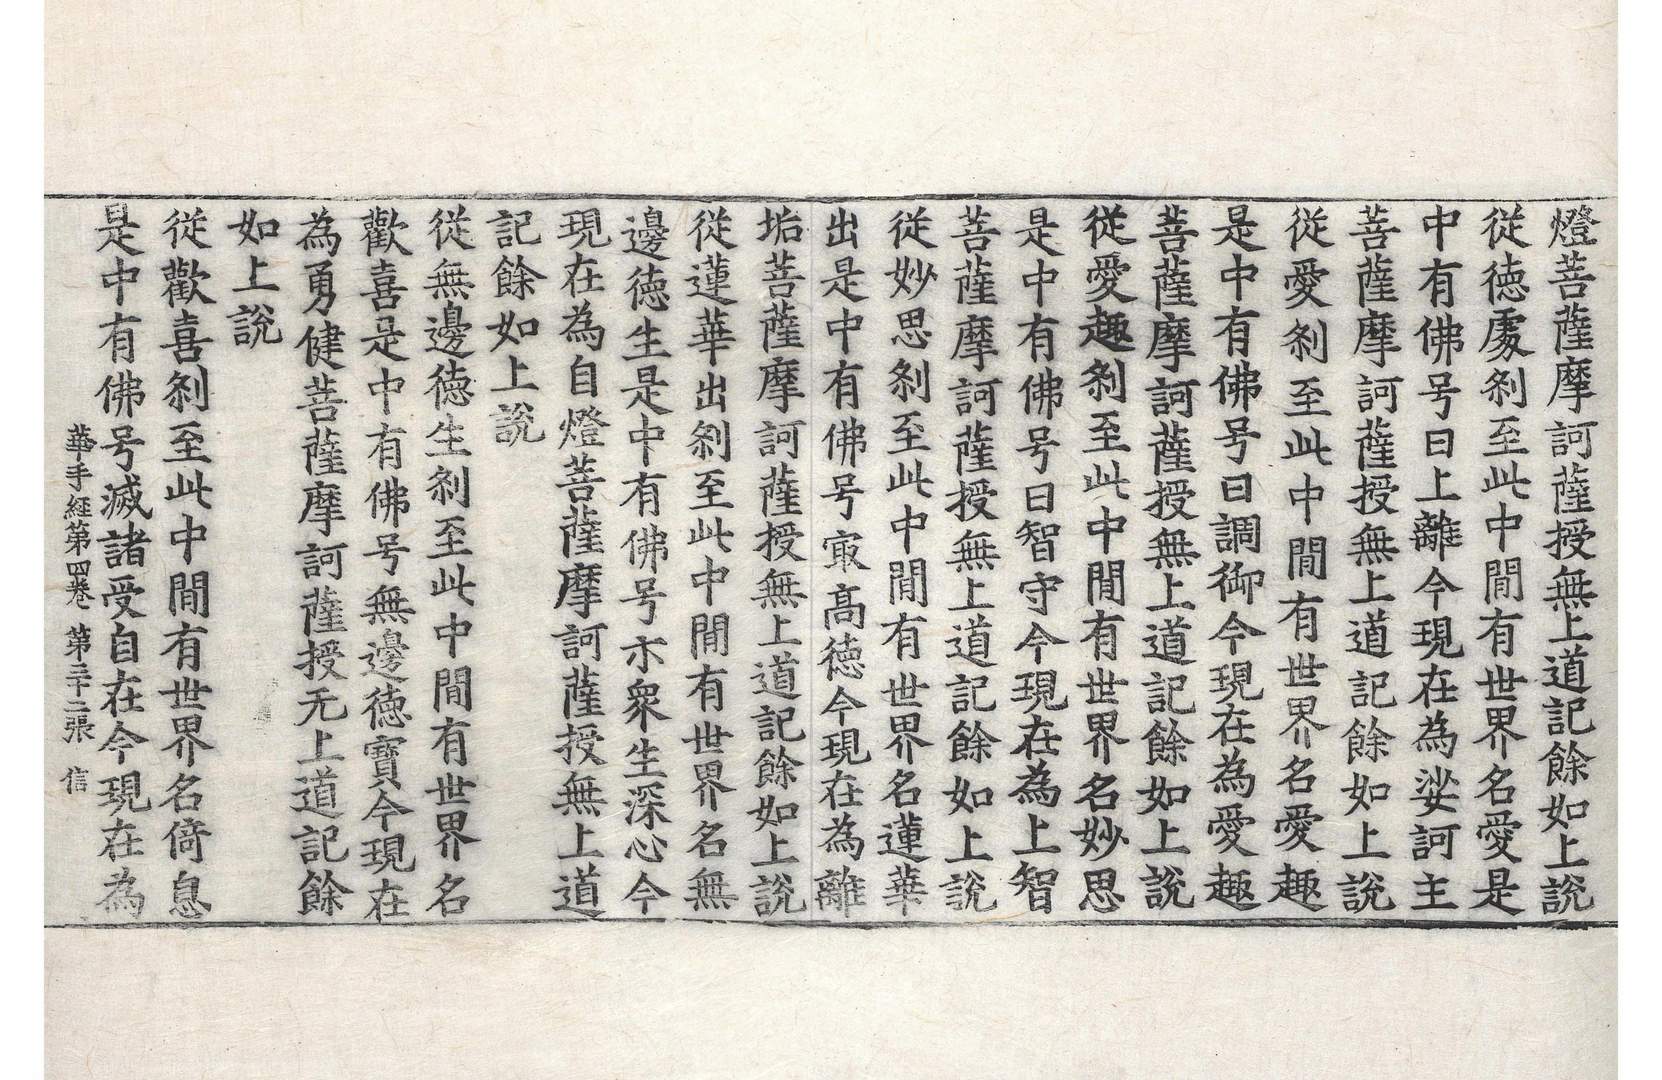 燈菩薩摩訶薩授無上道記餘如上說
從德處剎至此中間有世界名愛是
中有佛号曰上離今現在為娑訶主
菩薩摩訶薩授無上道記餘如上說
從愛剎至此中間有世界名愛趣
是中有佛号曰調御今現在為愛趣
菩薩摩訶薩授無上道記餘如上說
從愛趣剎至此中間有世界名妙思
是中有佛号曰智守今現在為上智
菩薩摩訶薩授無上道記餘如上說
從妙思剎至此中間有世界名蓮華
出是中有佛号冣高德今現在為離
垢菩薩摩訶薩授無上道記餘如上說
從蓮華出剎至此中間有世界名無
邊德生是中有佛号示眾生深心今
現在為自燈菩薩摩訶薩授無上道
記餘如上說
從無邊德生剎至此中間有世界名
歡喜是中有佛号無邊德寶今現在
為勇健菩薩摩訶薩授无上道記餘
如上說
從歡喜剎至此中間有世界名倚息
是中有佛号滅諸受自在今現在為
華手經第四卷 第三十二張 信